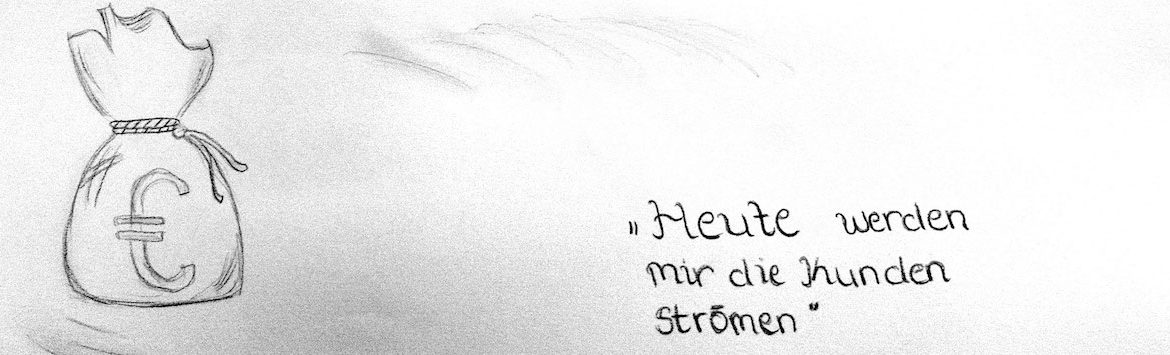 €
„Heute werden
mir die Kunden
strömen“